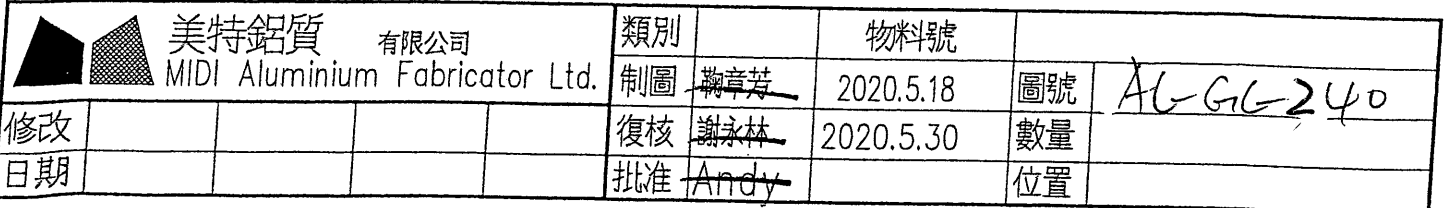 美特鋁質 有限公司
MIDI Aluminium Fabricator Ltd.
類別 物料號
制圖 鞠章芳 2020.5.18 圖號 AL-GL-240
修改 復核 謝永林 2020.5.30 數量
日期 批准 Andy 位置